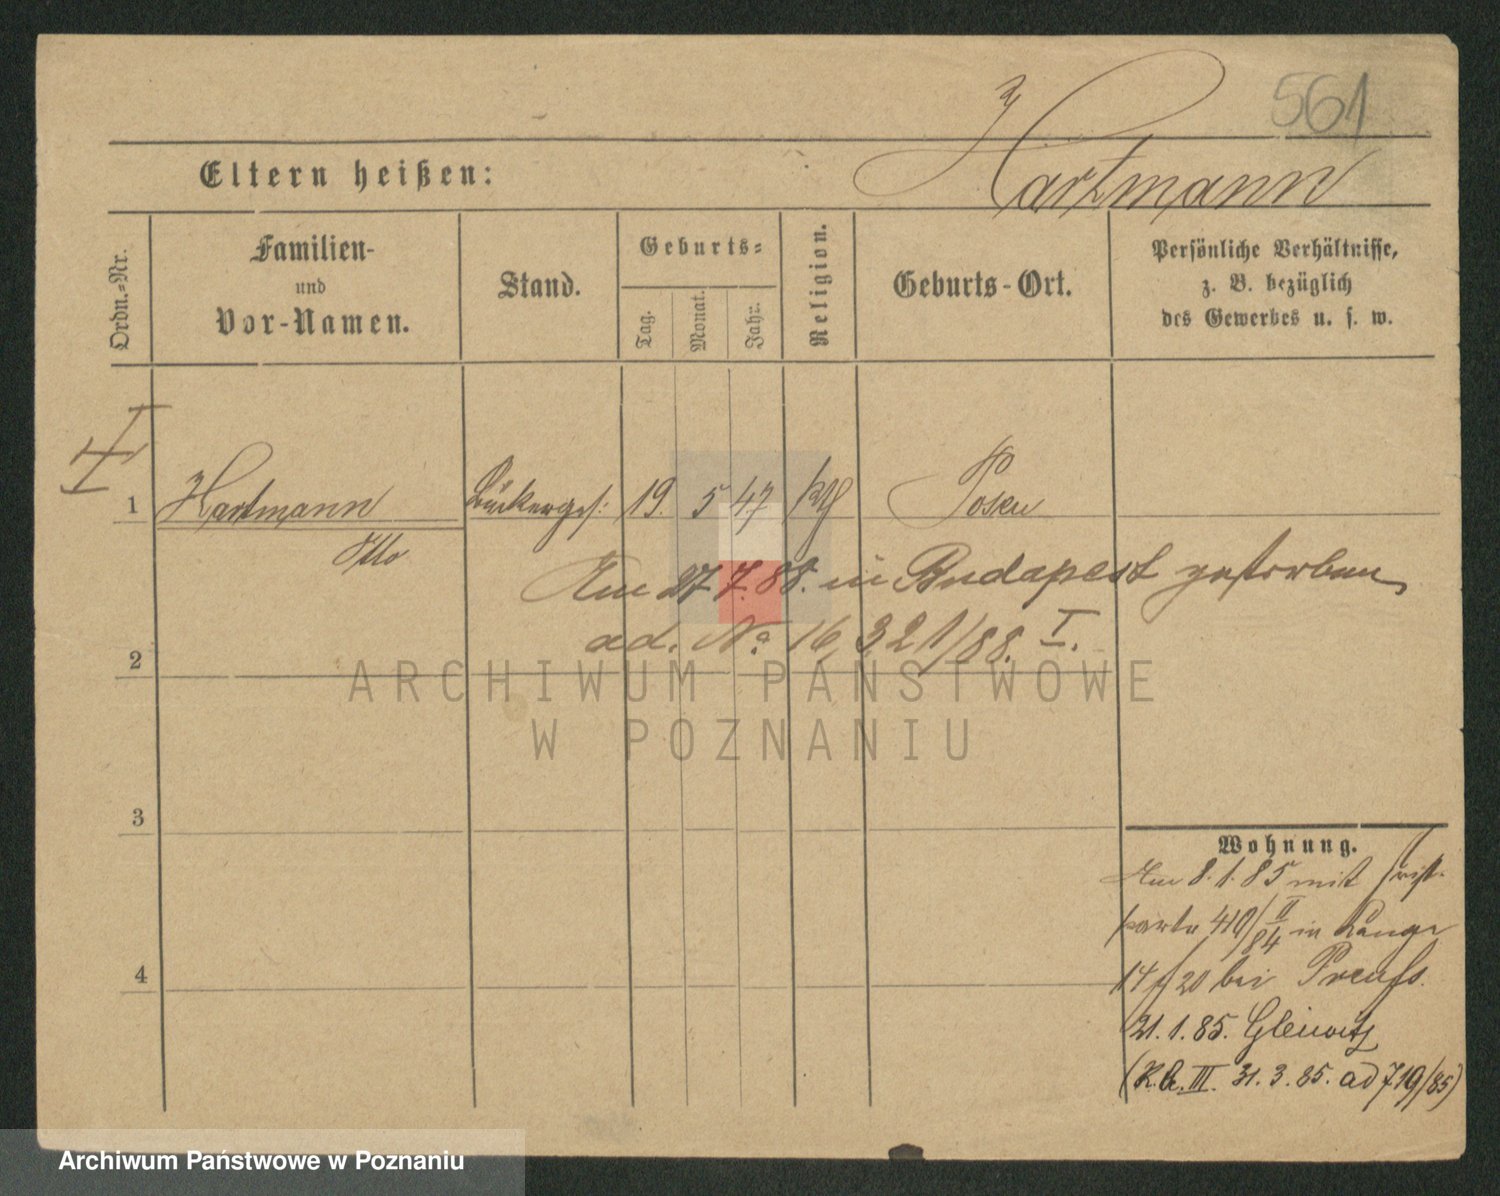 561
Hartmann
Eltern heißen:
Ordn.-Nr.
Familien-
und
Vor-Namen.
Stand.
Geburts-
Tag.
Monat.
Jahr.
Religion.
Geburts-Ort.
Persönliche Verhältnisse,
z. B. bezüglich
des Gewerbes u. s. w.
I
1 Hartmann Bäckerges: 19. 5 47 Posen
Otto
Am 27 7. 88. in Budapest gestorben
ad. No. 16,321/88. I.
2
ARCHIWUM PAŃSTWOWE
W POZNANIU
3
4
Wohnung.
Am 8. 1. 85 mit
karte 410/II 84 in Lange
14 20 bei Preuß.
21. 1. 85. Gleiwitz
(K.A. III. 31. 3. 85. ad 719/85)
Archiwum Państwowe w Poznaniu